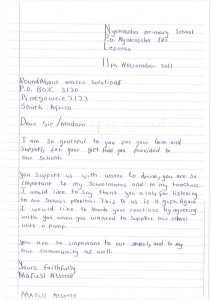 Nyakosoba primary school
P.O. Nyakosoba 185
Lesotho
11th November 2011
Roundabout water solutions
P.O. BOX 3120
Pinegowrie 2123
South Africa
Dear Sir/Madam
I am so grateful to you for your love and
support, for your gift that you provided to
our school.
You support us with water to drink, you are so
important to my schoolmates and to my teachers.
I would like to say thank you a lot for listening
to our school problem. This to us is a gift. Again
I would like to thank your services by agreeing
with you when you wanted to supplies our school
with a pump.
You are so important to our school and to my
our community as well.
Yours faithfully